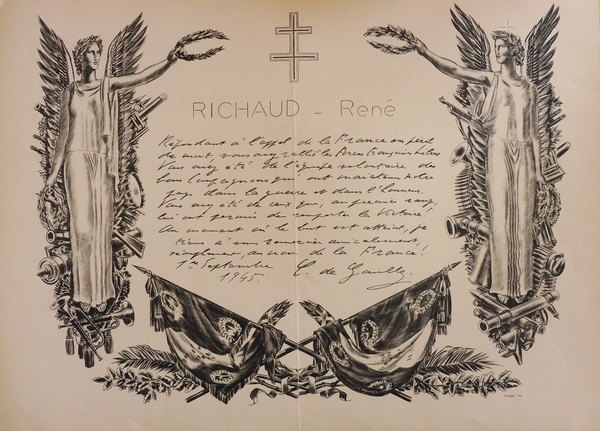 RICHAUD - René
Répondant à l'appel de la France en péril
de mort, vous avez rallié les Forces françaises libres
Vous avez été de l'équipe volontaire des
bons Compagnons qui ont maintenu notre
pays dans la guerre et dans l'honneur.
Vous avez été de ceux qui, au premier rang,
lui ont permis de remporter la Victoire!
Au moment où le but est atteint, je
tiens à vous remercier amicalement,
simplement, au nom de la France!
1er Septembre
1945. C. de Gaulle